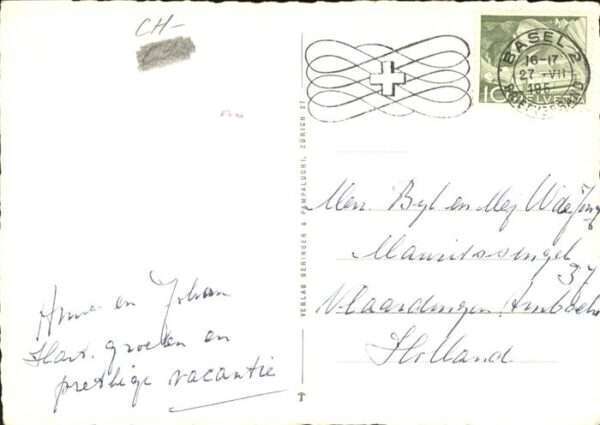 CH-
BASEL 2
16-17
27.-VII
195
BRIEFVERSAND
10 HELVETIA
VERLAG BERINGER & PAMPALUCHI, ZÜRICH 27
Anna en Johan
Hart. groeten en
prettige vacantie
Men. Byl en Mej W de Jong
Maurissingel
37
Vlaardingen, Ambacht
Holland